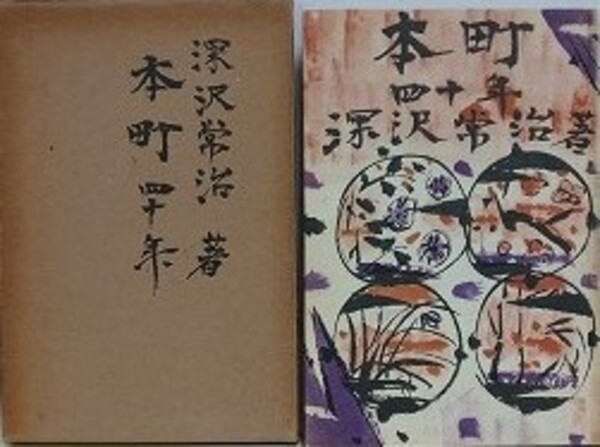 深沢常治 著
本町四十年
本町
四十年
深沢常治著